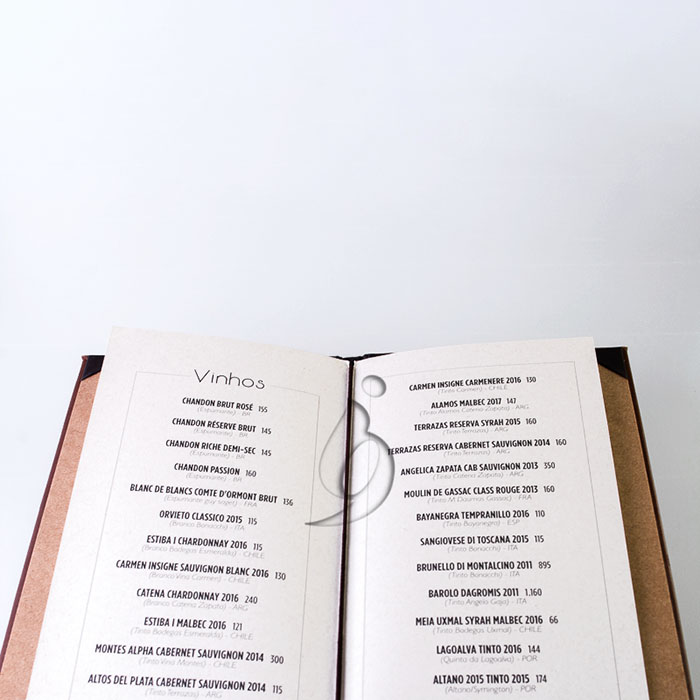 Vinhos
CHANDON BRUT ROSÉ 155
(Espumante) - BR
CHANDON RÉSERVE BRUT 145
(Espumante) - BR
CHANDON RICHE DEMI-SEC 145
(Espumante) - BR
CHANDON PASSION 160
(Espumante) - BR
BLANC DE BLANCS COMTE D'ORMONT BRUT 136
(Espumante guy saget) - FRA
ORVIETO CLASSICO 2015 115
(Branco Bonacchi) - ITA
ESTIBA I CHARDONNAY 2016 115
(Branco Bodegas Esmeralda) - CHILE
CARMEN INSIGNE SAUVIGNON BLANC 2016 130
(Branco Vina Carmen) - CHILE
CATENA CHARDONNAY 2016 240
(Branco Catena Zapata) - ARG
ESTIBA I MALBEC 2016 121
(Tinto Bodegas Esmeralda) - CHILE
MONTES ALPHA CABERNET SAUVIGNON 2014 300
(Tinto Vina Montes) - CHILE
ALTOS DEL PLATA CABERNET SAUVIGNON 2014 115
(Tinto Terrazas) - ARG
CARMEN INSIGNE CARMENERE 2016 130
(Tinto Carmen) - CHILE
ALAMOS MALBEC 2017 147
(Tinto Alamos Catena Zapata) - ARG
TERRAZAS RESERVA SYRAH 2015 160
(Tinto Terrazas) - ARG
TERRAZAS RESERVA CABERNET SAUVIGNON 2014 160
(Tinto Terrazas) - ARG
ANGELICA ZAPATA CAB SAUVIGNON 2013 350
(Tinto Catena Zapata) - ARG
MOULIN DE GASSAC CLASS ROUGE 2013 160
(Tinto M.Daumas Gassac) - FRA
BAYANEGRA TEMPRANILLO 2016 110
(Tinto Bayanegra) - ESP
SANGIOVESE DI TOSCANA 2015 115
(Tinto Bonacchi) - ITA
BRUNELLO DI MONTALCINO 2011 895
(Tinto Bonacchi) - ITA
BAROLO DAGROMIS 2011 1.160
(Tinto Angelo Gaja) - ITA
MEIA UXMAL SYRAH MALBEC 2016 66
(Tinto Bodegas Uxmal) - CHILE
LAGOALVA TINTO 2016 144
(Quinta da Lagoalva) - POR
ALTANO 2015 TINTO 2015 174
(Altano/Symington) - POR